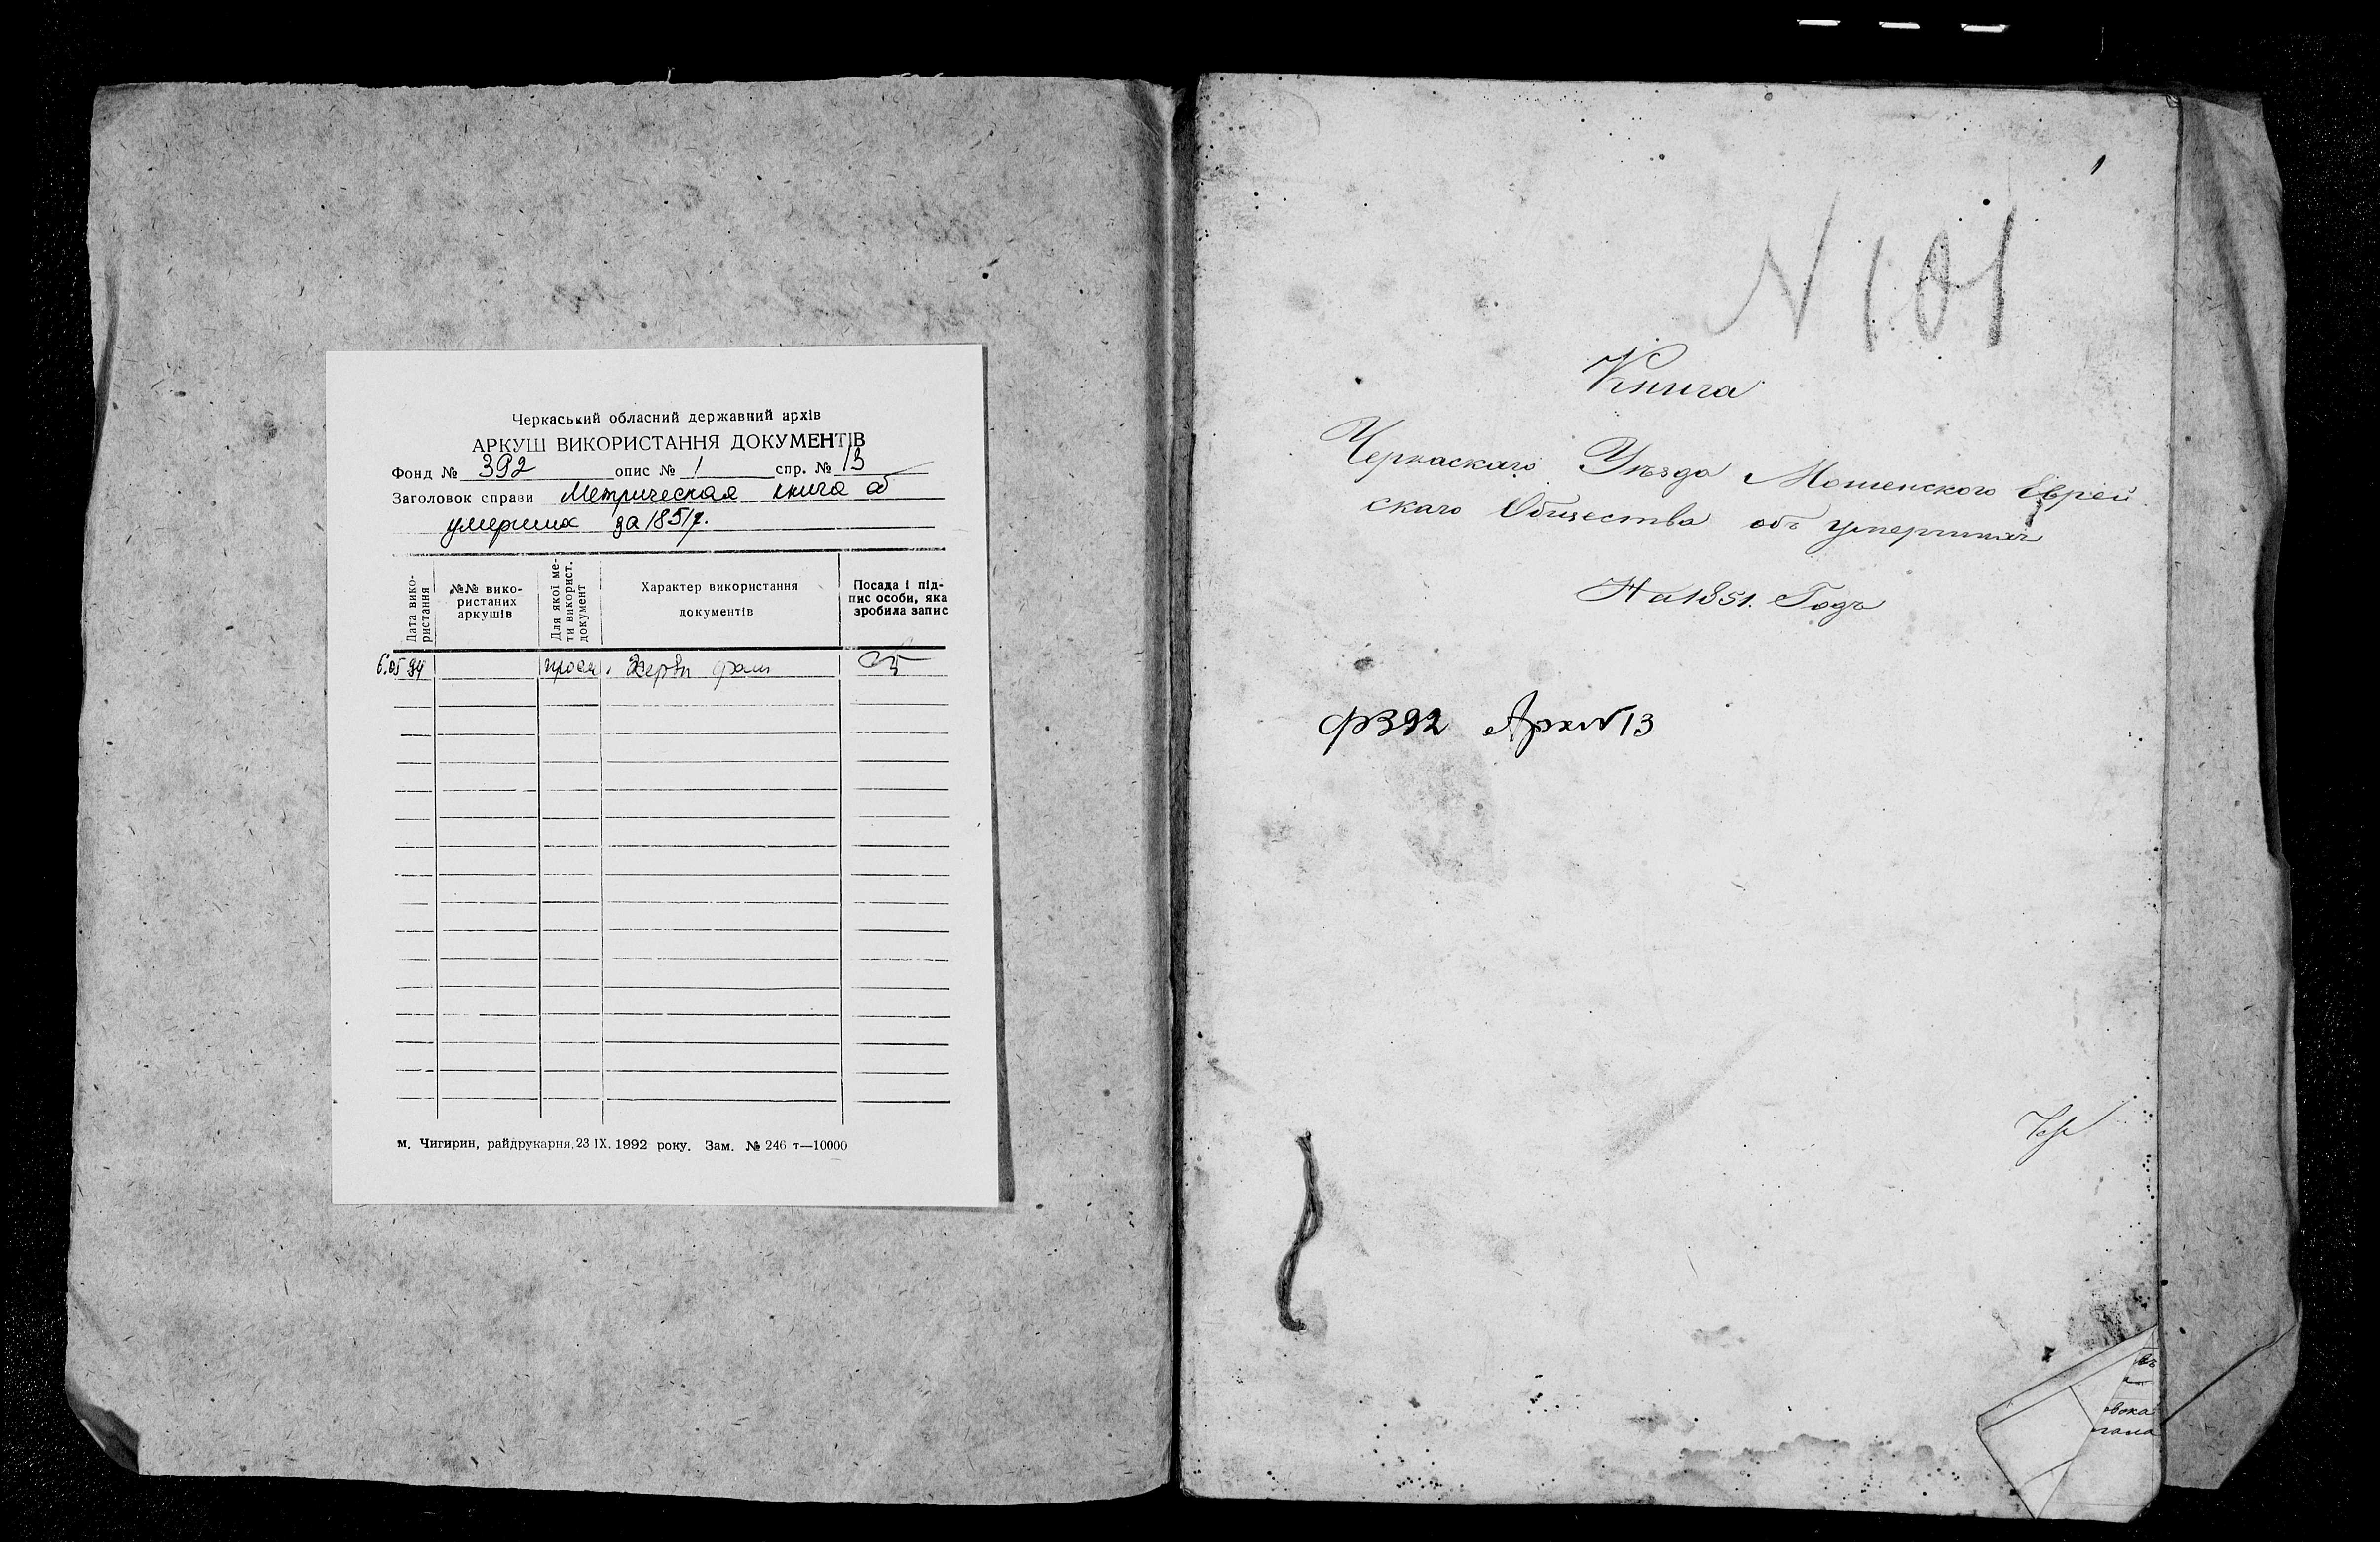 Черкаський обласний державний архів
АРКУШ ВИКОРИСТАННЯ ДОКУМЕНТІВ
Фонд № 392 опис № 1 спр. № 13
Заголовок справи Метрическая книга об
умерших за 1851г.
Дата вико-
ристання
№№ вико-
ристаних
аркушів
Для якої ме-
ти використ.
документ
Характер використання
документів
Посада і під-
пис особи, яка
зробила запис
6.05 94
м. Чигирин, райдрукарня, 23 IX. 1992 року. Зам. № 246 т—10000
1
N 101
Книга
Черкаскаго Уѣзда Мошенского Еврей
скаго Общества объ умершихъ
На 1851. Годъ
ф392 Арх N 13